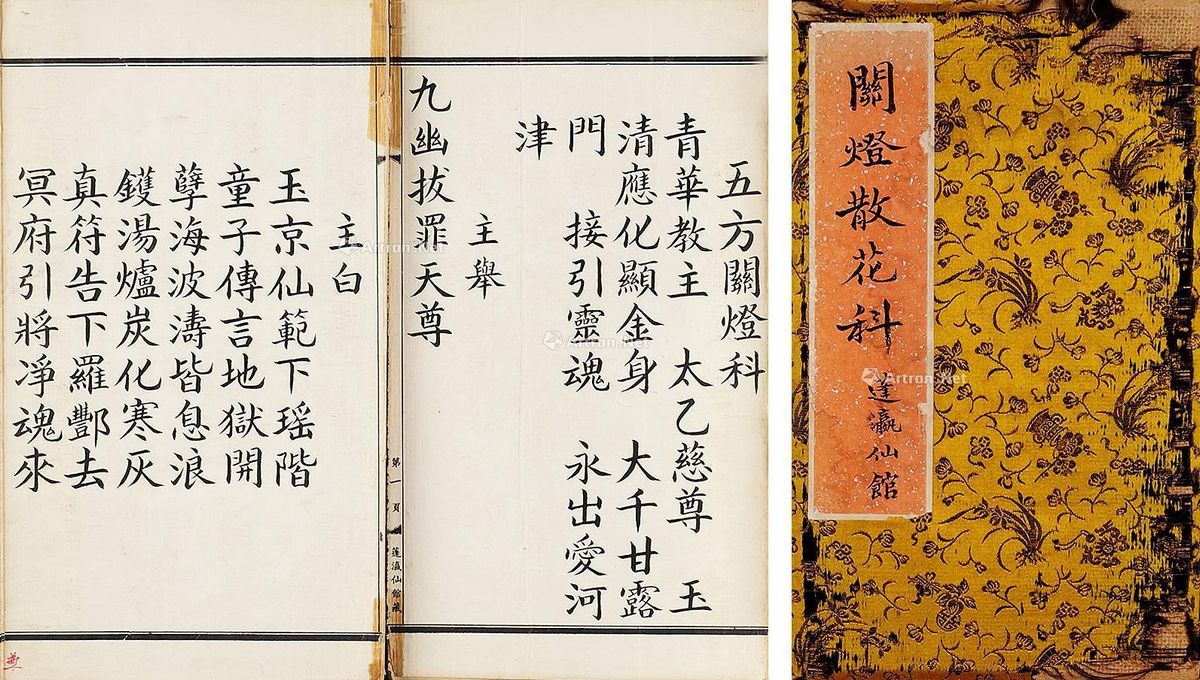 關燈散花科 蓬瀛仙館
五方關燈科
青華教主 太乙慈尊 玉
清應化顯金身 大千甘露
門 接引靈魂 永出愛河
津
主舉
九幽拔罪天尊
第一頁 蓬瀛仙館藏
主白
玉京仙範下瑶階
童子傳言地獄開
孽海波濤皆息浪
鑊湯爐炭化寒灰
真符告下羅酆去
冥府引將凈魂來
Artron.Net
Artron.Net
Artron.Net